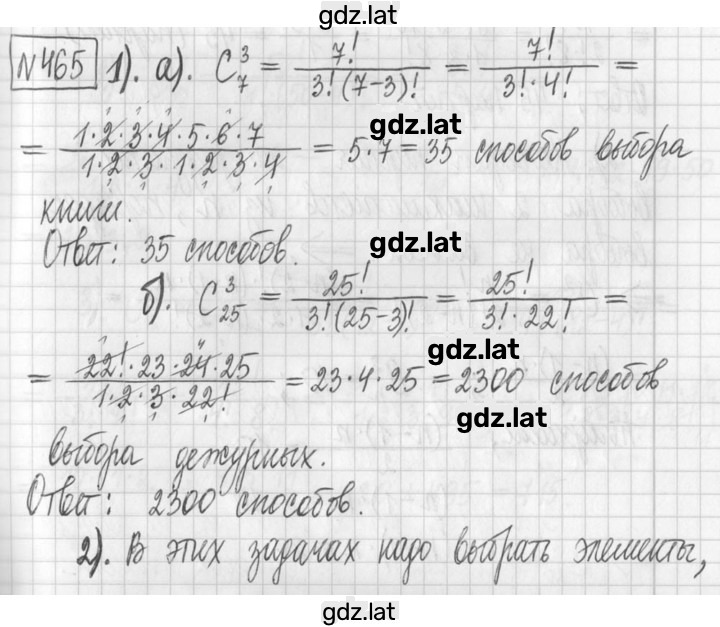 gdz.lat
№465 1). а). C₇³ = 7!/3!(7-3)! = 7!/3!·4! =
gdz.lat
= 1·2·3·4·5·6·7/1·2·3·1·2·3·4 = 5·7 = 35 способов выбора
книги.
Ответ: 35 способов.
gdz.lat
б). C₂₅³ = 25!/3!(25-3)! = 25!/3!·22! =
gdz.lat
= 22!·23·24·25/1·2·3·22! = 23·4·25 = 2300 способов
gdz.lat
выбора дежурных.
Ответ: 2300 способов.
2). В этих задачах надо выбрать элементы,
gdz.lat